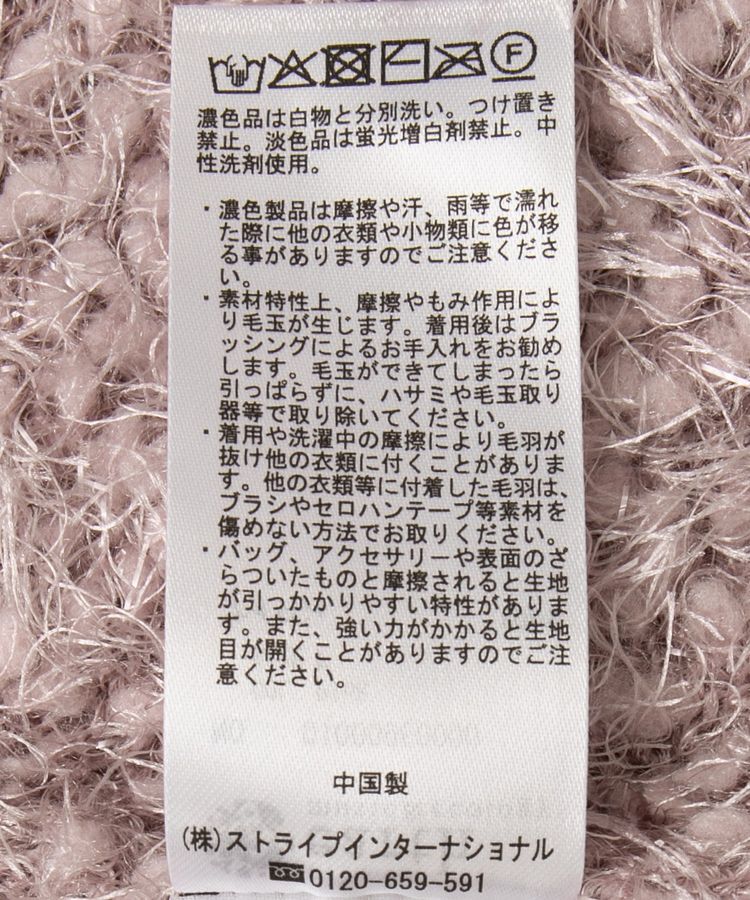 F
濃色品は白物と分別洗い。つけ置き
禁止。淡色品は蛍光増白剤禁止。中
性洗剤使用。
・濃色製品は摩擦や汗、雨等で濡れ
た際に他の衣類や小物類に色が移
る事がありますのでご注意くださ
い。
・素材特性上、摩擦やもみ作用によ
り毛玉が生じます。着用後はブラ
ッシングによるお手入れをお勧め
します。毛玉ができてしまったら
引っぱらずに、ハサミや毛玉取り
器等で取り除いてください。
・着用や洗濯中の摩擦により毛羽が
抜け他の衣類に付くことがありま
す。他の衣類等に付着した毛羽は、
ブラシやセロハンテープ等素材を
傷めない方法でお取りください。
・バッグ、アクセサリーや表面のざ
らついたものと摩擦されると生地
が引っかかりやすい特性がありま
す。また、強い力がかかると生地
目が開くことがありますのでご注
意ください。
中国製
(株)ストライプインターナショナル
0120-659-591